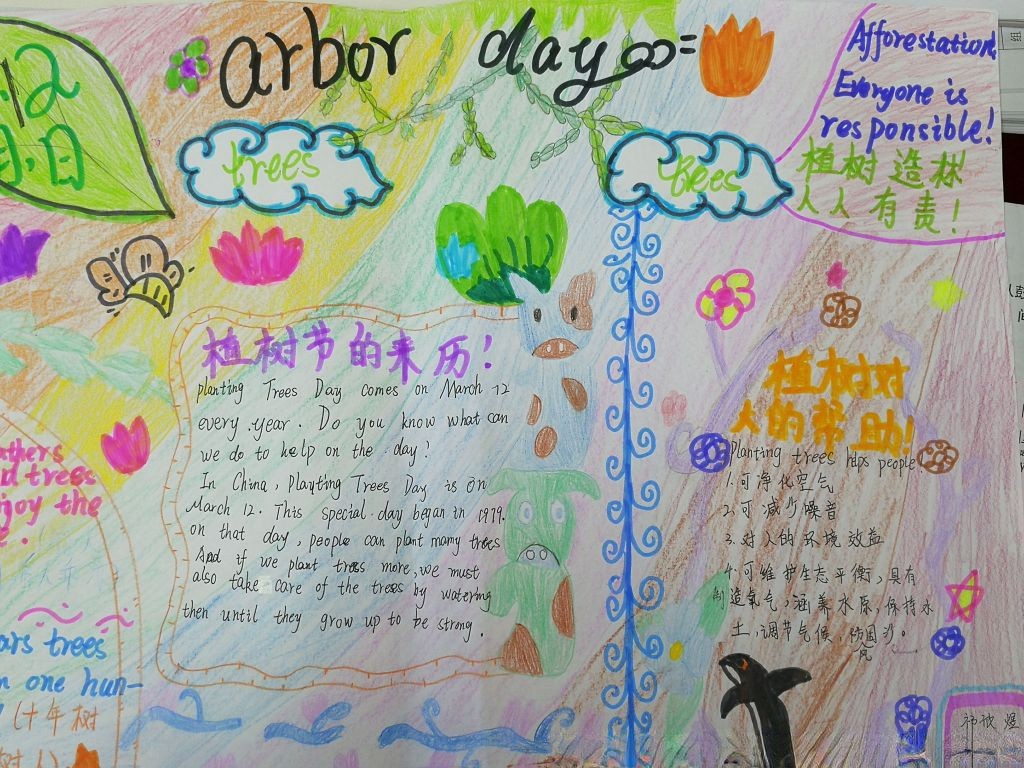 arbor day
Afforestation
Everyone is
responsible!
植树造林
人人有责!
trees
trees
植树节的来历!
planting Trees Day comes on March 12
every year. Do you know what can
we do to help on the day?
In China, Planting Trees Day is on
March 12. This special day began in 1979.
on that day, people can plant many trees
And if we plant trees more, we must
also take care of the trees by watering
then until they grow up to be strong.
植树对
人的帮助!
Planting trees helps people
1.可净化空气
2.可减少噪音
3.对人的环境效益
4.可维护生态平衡,具有
制造氧气,涵养水原,保持水
土,调节气候,防风固沙。
d trees
joy the
ars trees
n one hun-
(十年树